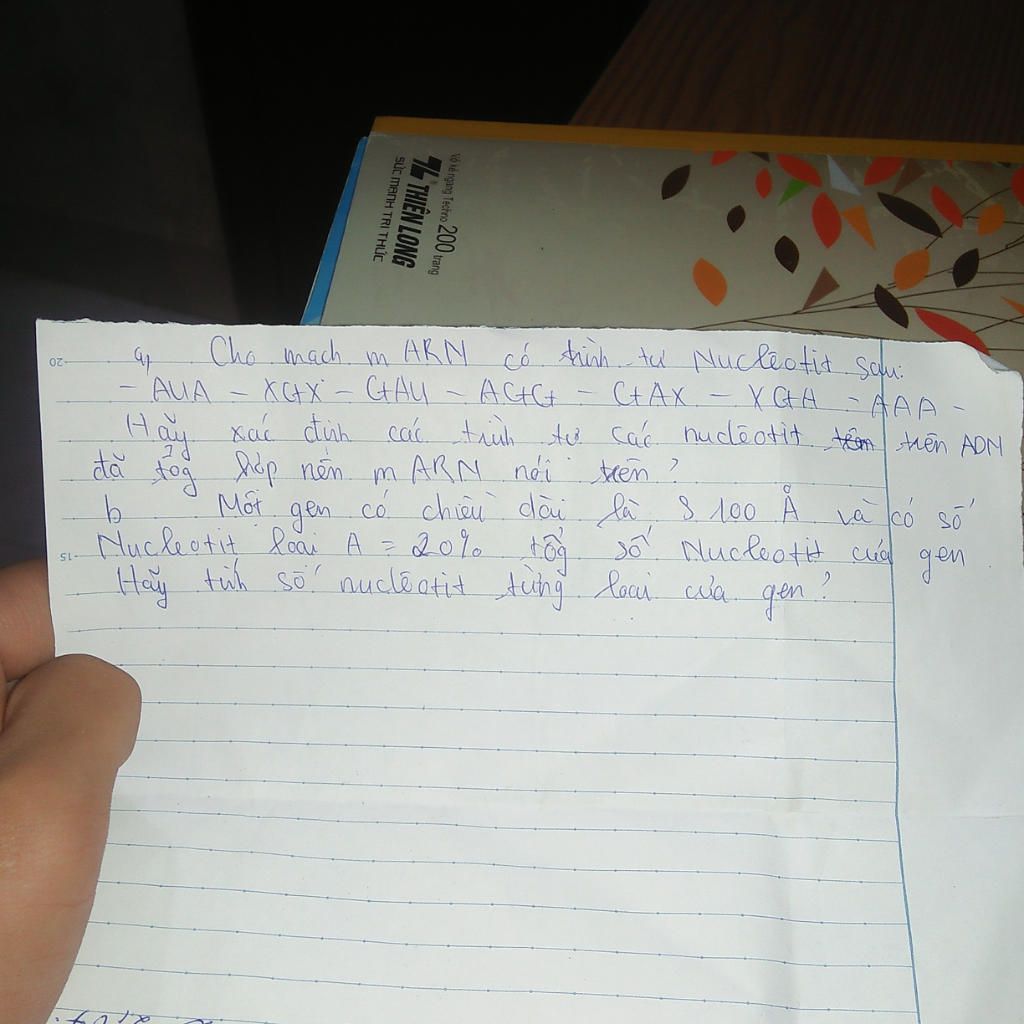 Vở kẻ ngang Techno 200 trang
THIÊN LONG
SỨC MẠNH TRI THỨC
20
a, Cho mạch mARN có trình tự Nuclêotit sau:
- AUA - XGX - GAU - AGG - GAX - XGA - AAA -
Hãy xác định các trình tự các nuclêotit trên ADN
đã tổg hợp nên mARN nói trên?
b Một gen có chiều dài là 5100 Å và có số
15
Nucleotit loại A = 20% tổg số Nucleotit của gen.
Hãy tính số nuclêotit từng loại của gen?